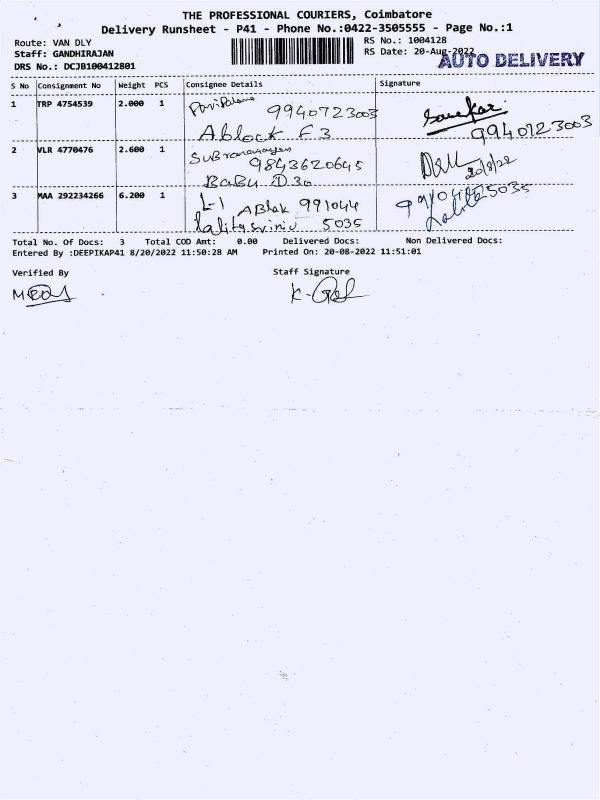 THE PROFESSIONAL COURIERS, Coimbatore
Delivery Runsheet - P41 - Phone No.:0422-3505555 - Page No.:1
Route: VAN DLY
Staff: GANDHIRAJAN
DRS No.: DCJB100412801
RS No.: 1004128
RS Date: 20-Aug-2022
AUTO DELIVERY
S No Consignment No Weight PCS Consignee Details Signature
1 TRP 4754539 2.000 1 9940723003
A block F3 9940723003
2 VLR 4770476 2.600 1
9843620645
Babu D30 20/8/22
3 MAA 292234266 6.200 1 L-1 A Block 991044
5035
Total No. Of Docs: 3 Total COD Amt: 0.00 Delivered Docs: Non Delivered Docs:
Entered By :DEEPIKAP41 8/20/2022 11:50:28 AM Printed On: 20-08-2022 11:51:01
Verified By Staff Signature